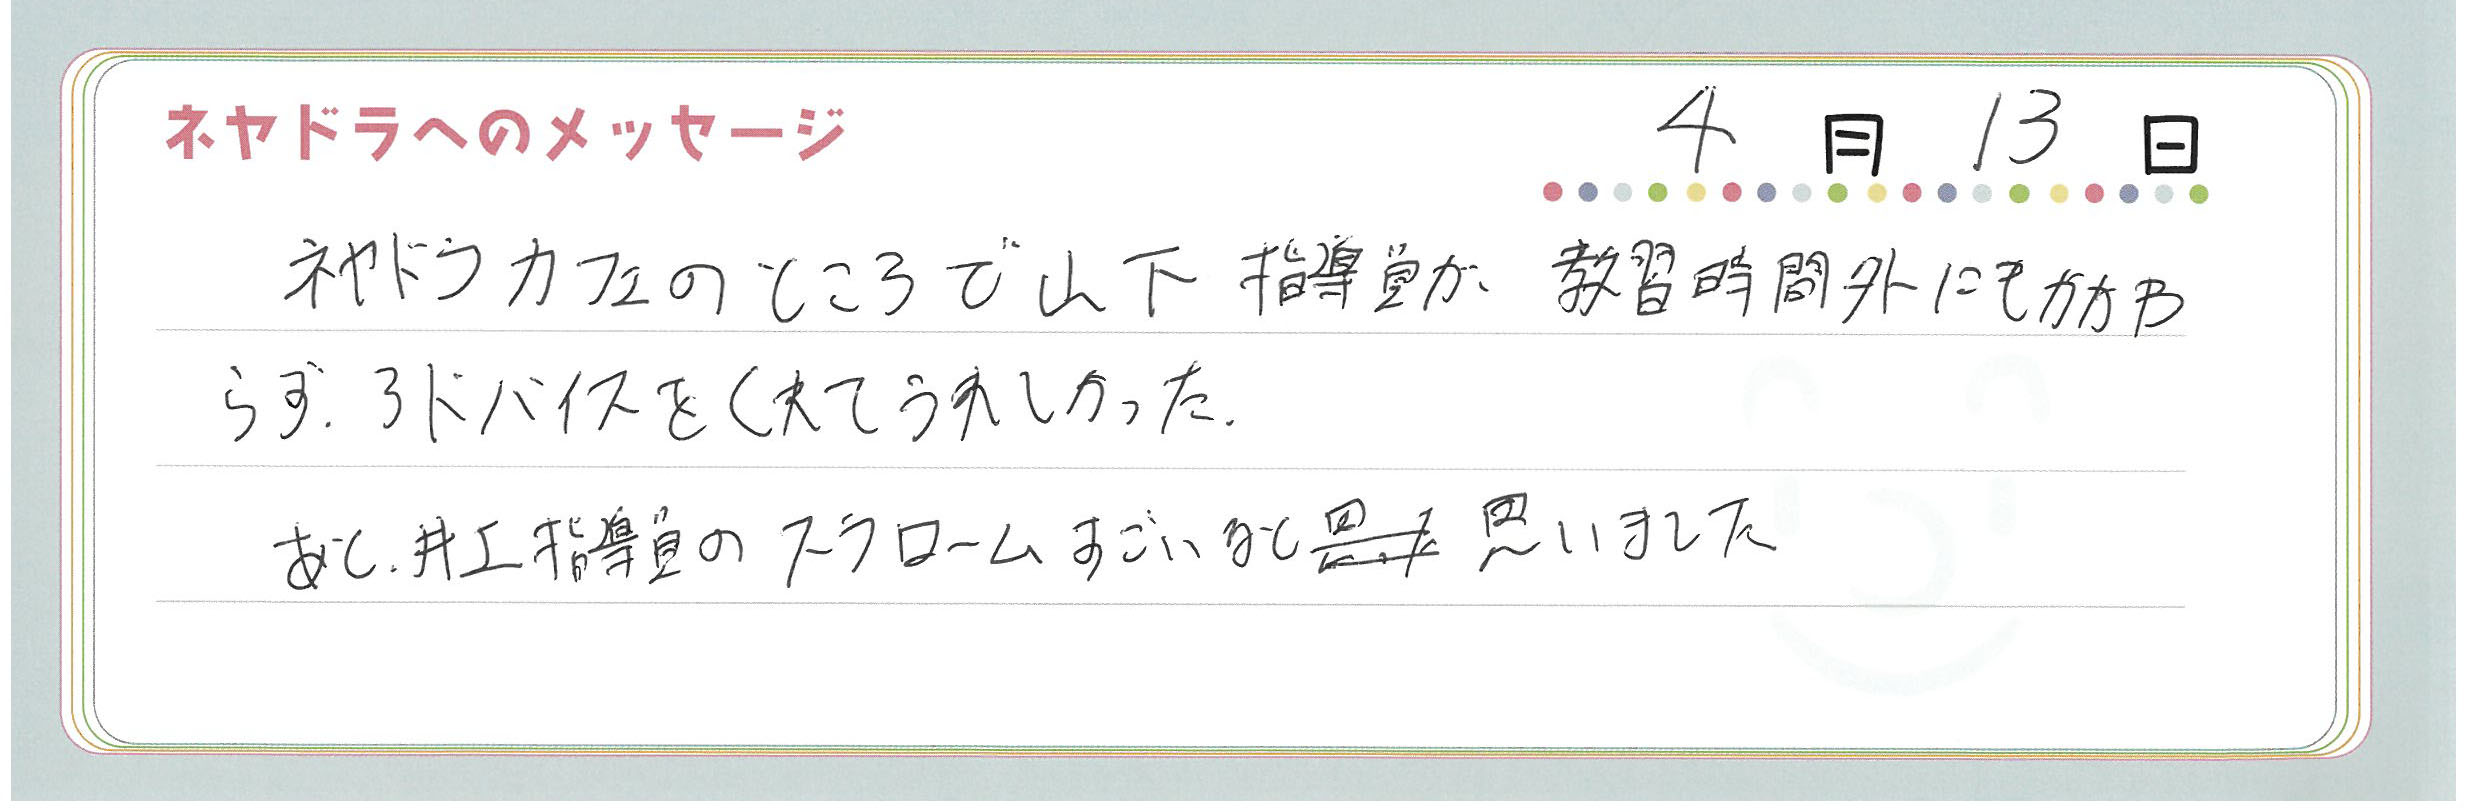 ネヤドラへのメッセージ
4月13日
ネヤドラカフェのところで山下指導員が、教習時間外にもかかわ
らず、アドバイスをくれてうれしかった。
あと、井上指導員のスラロームすごいなと思いました